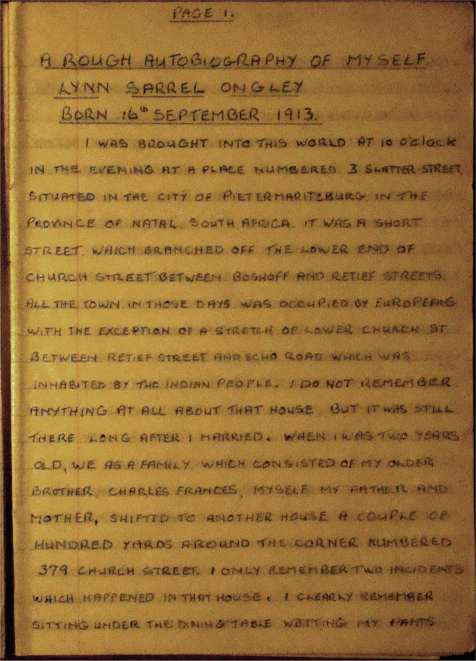 PAGE 1.
A ROUGH AUTOBIOGRAPHY OF MYSELF.
LYNN SARREL ONGLEY
BORN 16th SEPTEMBER 1913.
I WAS BROUGHT INTO THIS WORLD AT 10 O'CLOCK
IN THE EVENING AT A PLACE NUMBERED 3 SLATTER STREET,
SITUATED IN THE CITY OF PIETERMARITZBURG IN THE
PROVINCE OF NATAL, SOUTH AFRICA. IT WAS A SHORT
STREET, WHICH BRANCHED OFF THE LOWER END OF
CHURCH STREET BETWEEN BOSHOFF AND RETIEF STREETS.
ALL THE TOWN IN THOSE DAYS WAS OCCUPIED BY EUROPEANS
WITH THE EXCEPTION OF A STRETCH OF LOWER CHURCH ST
BETWEEN RETIEF STREET AND ECHO ROAD WHICH WAS
INHABITED BY THE INDIAN PEOPLE. I DO NOT REMEMBER
ANYTHING AT ALL ABOUT THAT HOUSE, BUT IT WAS STILL
THERE LONG AFTER I MARRIED. WHEN I WAS TWO YEARS
OLD, WE AS A FAMILY, WHICH CONSISTED OF MY OLDER
BROTHER, CHARLES FRANCES, MYSELF MY FATHER AND
MOTHER, SHIFTED TO ANOTHER HOUSE A COUPLE OF
HUNDRED YARDS AROUND THE CORNER NUMBERED
379 CHURCH STREET. I ONLY REMEMBER TWO INCIDENTS
WHICH HAPPENED IN THAT HOUSE. I CLEARLY REMEMBER
SITTING UNDER THE DINING TABLE WETTING MY PANTS